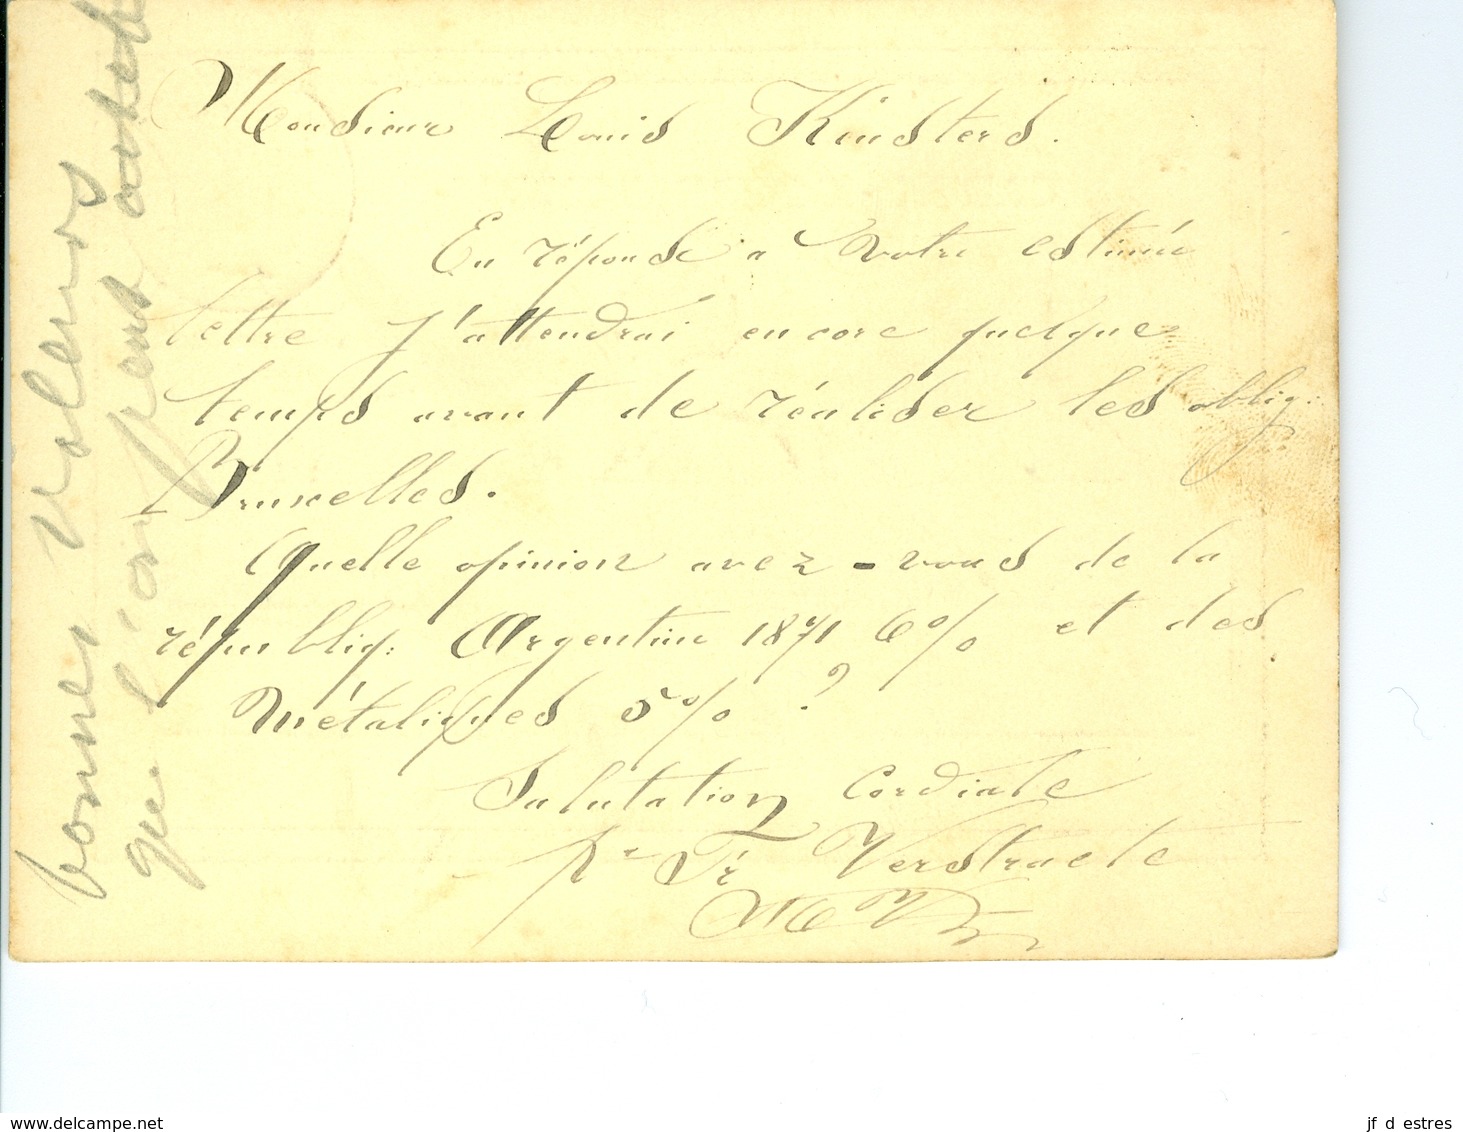 Monsieur Louis Kinsters.
En réponse a votre estimée
lettre j'attendrai encore quelque
temps avant de réaliser les oblig:
Bruxelles.
Quelle opinion avez-vous de la
républiq: Argentine 1871 6% et des
Métaliques 5% ?
Salutation Cordiale
pr Fr Verstraete
bonnes valeurs
que l'on peut acheter
www.delcampe.net
jf d estres